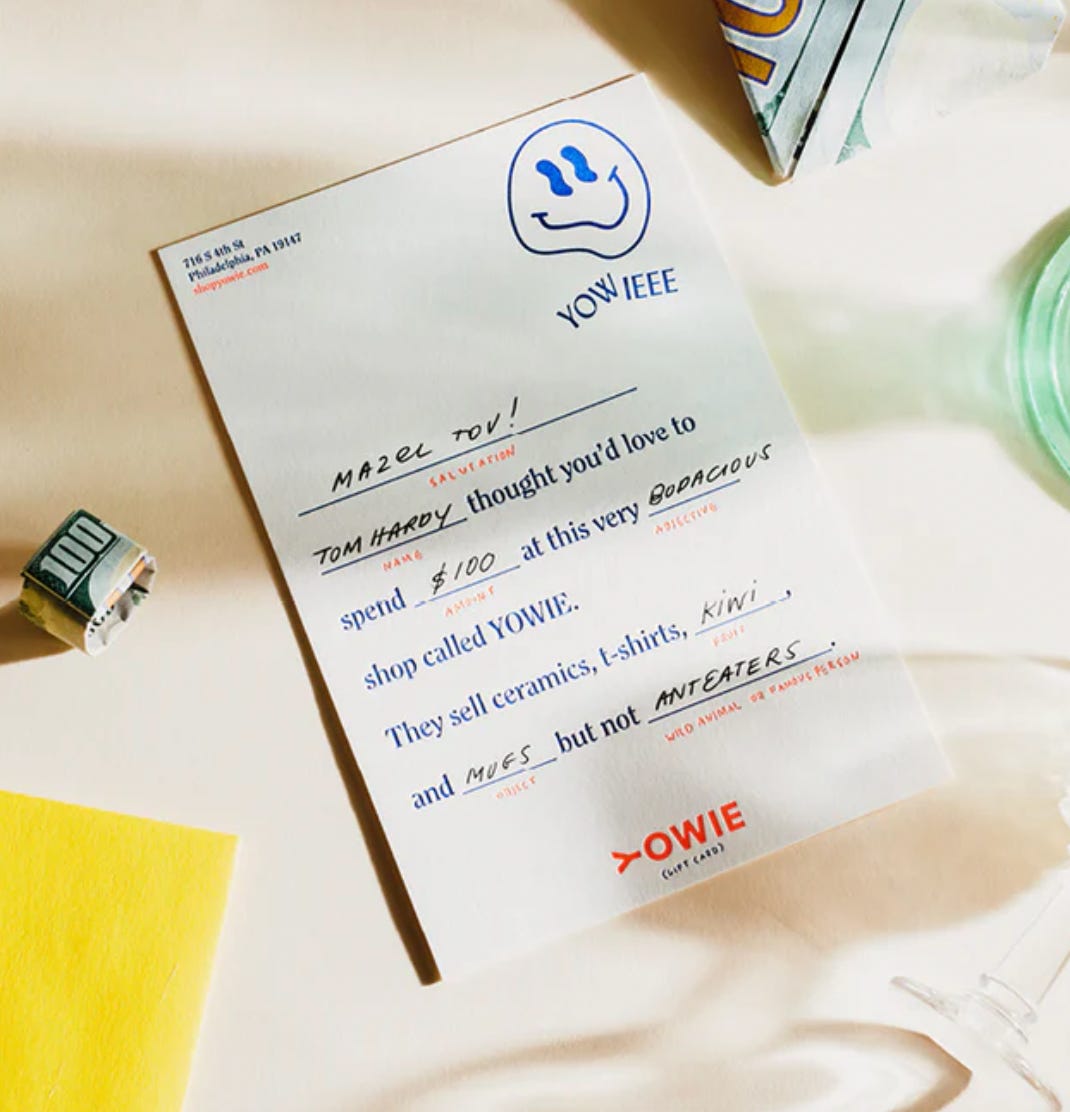 716 S 4th St
Philadelphia, PA 19147
shopyowie.com
YOWIEEE
MAZEL TOV!
SALUTATION
TOM HARDY thought you'd love to
NAME
spend $100 at this very BODACIOUS
AMOUNT ADJECTIVE
shop called YOWIE.
They sell ceramics, t-shirts, KIWI,
FRUIT
and MUGS but not ANTEATERS.
OBJECT WILD ANIMAL OR FAMOUS PERSON
YOWIE
(GIFT CARD)
100